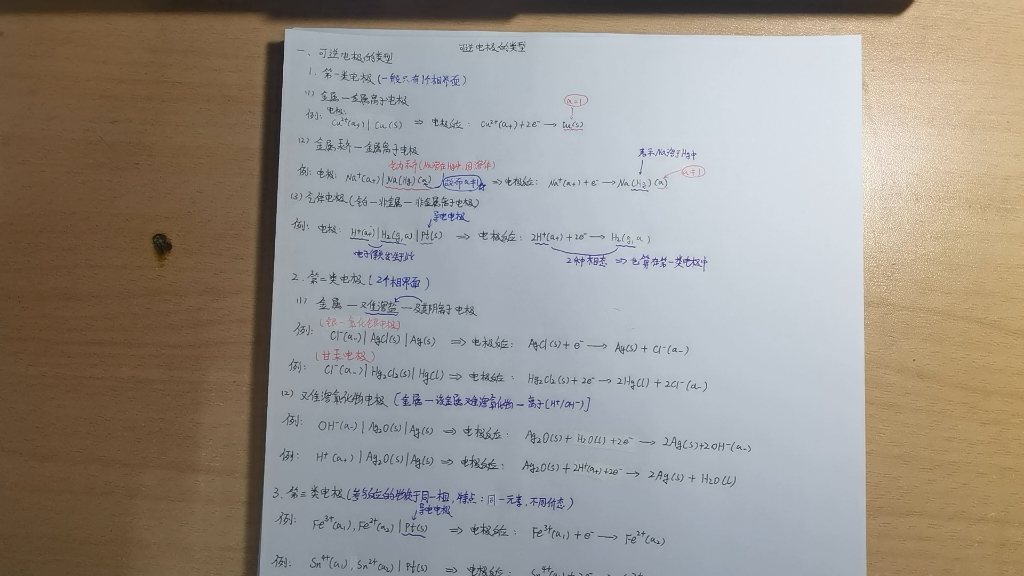 可逆电极的类型
一、可逆电极的类型
1. 第一类电极(一般只有1个相界面)
(1) 金属—金属离子电极
a=1
例: 电极: Cu²⁺(a₊)|Cu(s) ⇒ 电极反应: Cu²⁺(a₊)+2e⁻ → Cu(s)
(2) 金属汞齐—金属离子电极
表示Na溶于Hg中
例: 电极: Na⁺(a₊)|Na(Hg)(a) ⇒ 电极反应: Na⁺(a₊)+e⁻ → Na(Hg)(a) a≠1
(3) 气体电极(铂—非金属—非金属离子电极)
导电电极
例: 电极: H⁺(a₊)|H₂(g,a)|Pt(s) ⇒ 电极反应: 2H⁺(a₊)+2e⁻ → H₂(g,a)
2种相态 ⇒ 也算在第一类电极中
2. 第二类电极(2个相界面)
(1) 金属—难溶盐—及其阴离子电极
(银—氯化银电极)
例: Cl⁻(a₋)|AgCl(s)|Ag(s) ⇒ 电极反应: AgCl(s)+e⁻ → Ag(s)+Cl⁻(a₋)
(甘汞电极)
例: Cl⁻(a₋)|Hg₂Cl₂(s)|Hg(l) ⇒ 电极反应: Hg₂Cl₂(s)+2e⁻ → 2Hg(l)+2Cl⁻(a₋)
(2) 难溶氧化物电极[金属—该金属难溶氧化物—离子(H⁺/OH⁻)]
例: OH⁻(a₋)|Ag₂O(s)|Ag(s) ⇒ 电极反应: Ag₂O(s)+H₂O(l)+2e⁻ → 2Ag(s)+2OH⁻(a₋)
例: H⁺(a₊)|Ag₂O(s)|Ag(s) ⇒ 电极反应: Ag₂O(s)+2H⁺(a₊)+2e⁻ → 2Ag(s)+H₂O(l)
3. 第三类电极(参与反应的物质于同一相, 特点: 同一元素, 不同价态)
导电电极
例: Fe³⁺(a₁), Fe²⁺(a₂)|Pt(s) ⇒ 电极反应: Fe³⁺(a₁)+e⁻ → Fe²⁺(a₂)
例: Sn⁴⁺(a₁), Sn²⁺(a₂)|Pt(s) ⇒ 电极反应: